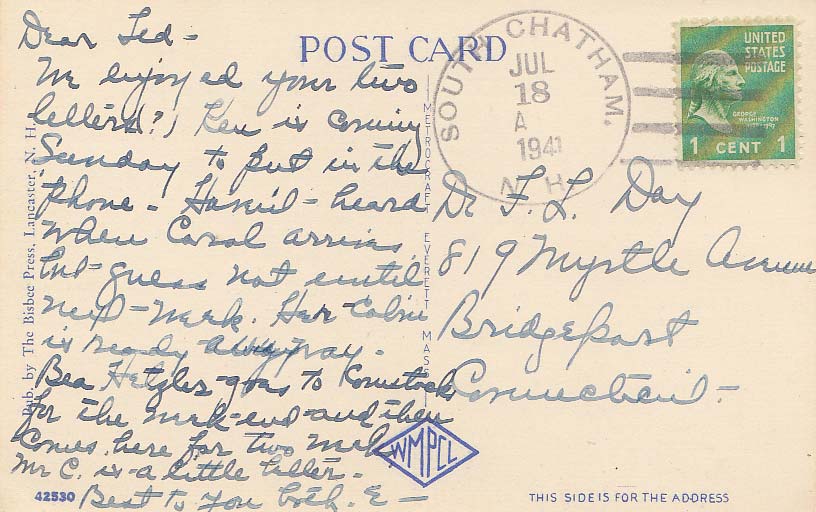 Dear Ted -
We enjoyed your two
letters(?) Ken is coming
Sunday to put in the
phone - Haven't heard
when Carol arrives
but guess not until
next week. Her cabin
is ready anyway -
Bea Hetzler goes to Comstock
for the week-end and then
comes here for two weeks
Mr C. is a little better -
Best to you both. E -
POST CARD
SOUTH CHATHAM, N. H.
JUL
18
A
1941
UNITED
STATES
POSTAGE
GEORGE
WASHINGTON
1 CENT 1
Dr F. L. Day
819 Myrtle Avenue
Bridgeport
Connecticut -
Pub. by The Bisbee Press, Lancaster, N. H.
METROCRAFT EVERETT MASS
WMPCL
42530
THIS SIDE IS FOR THE ADDRESS